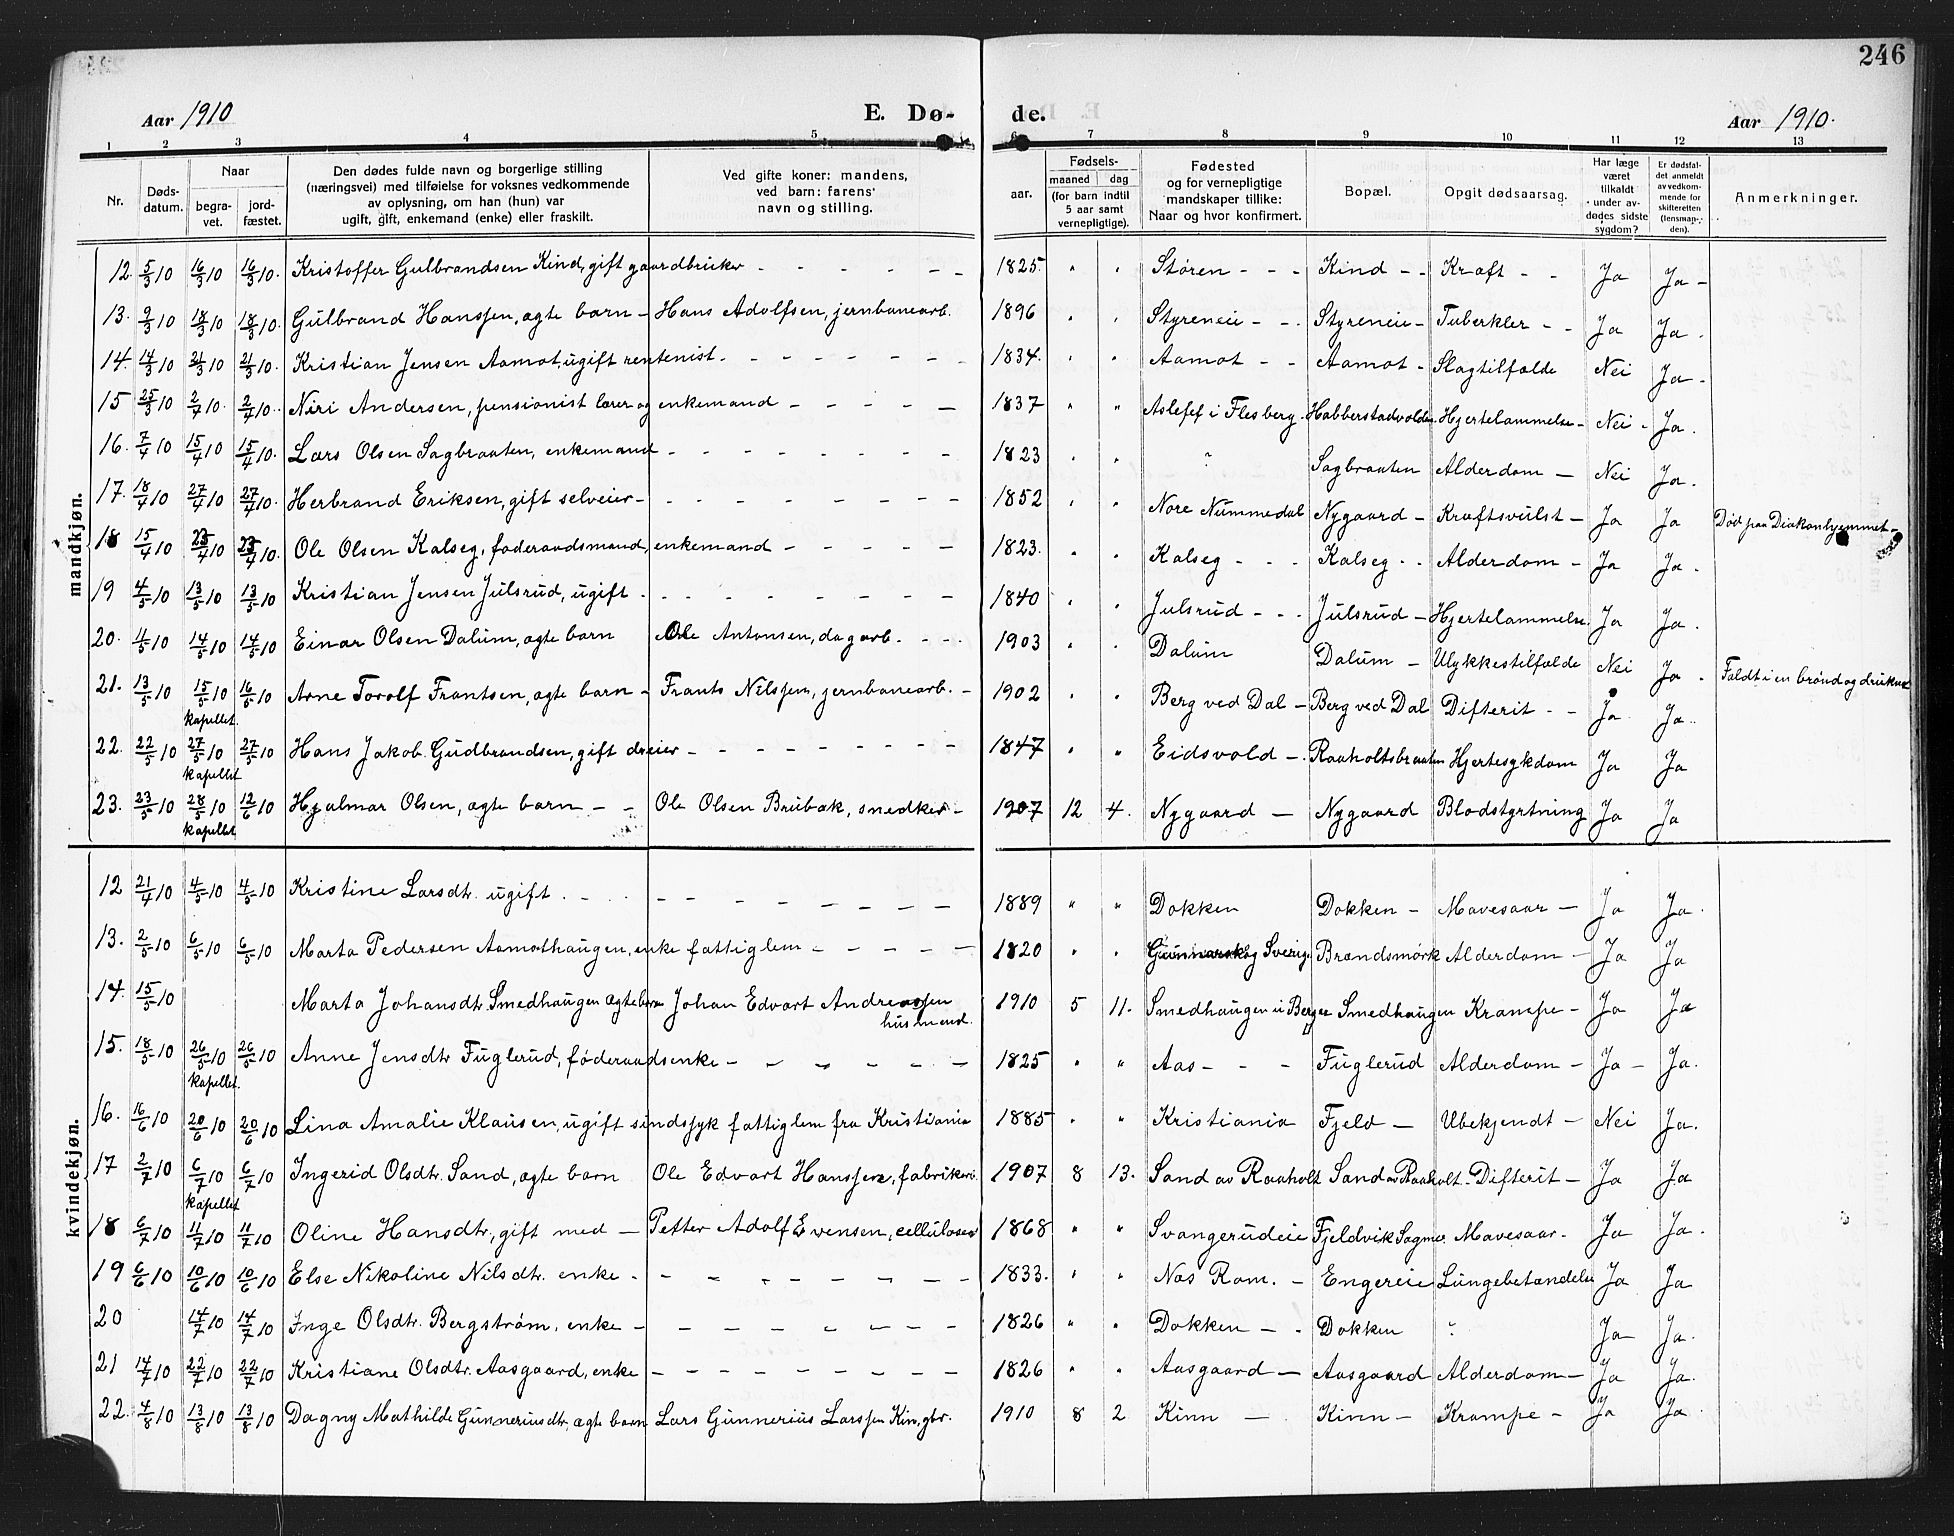 246
Aar 1910
E. Dø-
de.
Aar 1910.
1 2 3 4 5 6 7 8 9 10 11 12 13
Nr.
Døds-
datum.
Naar
begra-
vet.
jord-
fæstet.
Den dødes fulde navn og borgerlige stilling
(næringsvei) med tilføielse for voksnes vedkommende
av oplysning, om han (hun) var
ugift, gift, enkemand (enke) eller fraskilt.
Ved gifte koner: mandens,
ved barn: farens
navn og stilling.
aar.
Fødsels-
maaned dag
(for barn indtil
5 aar samt
vernepligtige).
Fødested
og for vernepligtige
mandskaper tillike:
Naar og hvor konfirmert.
Bopæl.
Opgit dødsaarsag.
Har læge
været
tilkaldt
under av-
dødes sidste
sygdom?
Er dødsfal-
det anmeldt
av vedkom-
mende for
skifteretten
(lensman-
den).
Anmerkninger.
mandkjøn.
12. 5/3 10 16/3 10 16/3 10. Kristoffer Gulbrandsen Kind, gift gaardbruker - - - - - 1825. " " Støren - - - Kind - - Kræft - - Ja Ja -
13. 9/3 10 18/3 10 18/3 10. Gulbrand Hanssen, ægte barn - Hans Adolfsen, jernbanearb. 1896 " " Styreneie - - Styreneie - Tuberkler - - Ja Ja.
14. 14/3 10 21/3 10 21/3 10. Kristian Jensen Aamot, ugift rentenist. - - - - - 1834. " " Aamot - - Aamot - Slagtilfælde Nei Ja -
15 25/3 10 2/4 10. 2/4 10. Niri Andersen, pensionist lærer og enkemand - - - - 1837 " " Aslefef i Flesberg. Habberstadvolden. Hjertelammelse - Nei - Ja.
16. 7/4 10 15/4 10 15/4 10. Lars Olsen Sagbraaten, enkemand - - - - - 1823 " " ? Sagbraaten Alderdom - Nei Ja.
17. 18/4 10 27/4 10 27/4 10. Herbrand Eriksen, gift selveier - - - - - 1852 " " Nore Nummedal Nygaard - Kræftsvulst - Ja Ja Død paa Diakonhjemmet -
18 15/4 10 23/4 10 23/4 10. Ole Olsen Kalseg, føderaadsmand, enkemand - - - - 1823. " " Kalseg - - - Kalseg - - Alderdom - Ja Ja.
19 4/5 10 13/5 10 13/5 10 Kristian Jensen Julsrud, ugift - - - - - 1840 " " Julsrud - - - Julsrud - Hjertelammelse. Ja Ja.
20. 4/5 10 14/5 10 14/5 10 Einar Olsen Dalum, ægte barn Ole Antonsen, dagarb. - - - 1903 " " Dalum Dalum - Ulykkestilfælde Nei Ja. Faldt i en brønd og druknet
21. 13/5 10 15/5 10 16/5 10 Arne Torolf Frantsen, ægte barn - Frants Nilssen, jernbanearb. - 1902 " " Berg ved Dal - Berg ved Dal Difterit - - Ja Ja.
kapellet.
22. 22/5 10 27/5 10 27/5 10 Hans Jakob Gudbrandsen, gift dreier - - - - - 1847 " " Eidsvold - Raaholtsbraaten Hjertesykdom Ja Ja
kapellet
23. 23/5 10 28/5 10 12/6 10 Hjalmar Olsen, ægte barn - - Ole Olsen Brubak, snedker - 1907 12 4. Nygaard - Nygaard Blodstyrtning Ja Ja
kapellet
kvindekjøn.
12 21/4 10 4/5 10 4/5 10 Kristine Larsdtr. ugift - - - - - 1889 " " Dokken Dokken - Mavesaar - Ja Ja.
13. 2/5 10 6/5 10 6/5 10. Marta Pedersen Aamothaugen, enke fattiglem - - - - 1820 " " Gunnarskog Sverige Brandsmørk Alderdom - Ja Ja
14. 15/5 10 Marta Johansdtr. Smedhaugen ægte barn Johan Edvart Andreassen 1910 5 11. Smedhaugen u Berger Smedhaugen Krampe - Ja Ja
husmand.
15. 18/5 10 26/5 10 26/5 10 Anne Jensdtr Fuglerud, føderaadsenke - - - - - 1825 " " Aas - - - Fuglerud Alderdom - Ja - Ja.
kapellet.
16. 16/6 10 20/6 10 20/6 10 Lina Amalie Klausen, ugift sindssyk fattiglem fra Kristiania 1885 " " Kristiania Fjeld - Ubekjendt - Nei Ja.
17 2/7 10 6/7 10 6/7 10 Ingerid Olsdtr. Sand, ægte barn Ole Edvart Hanssen, fabrikarb. 1907 8 13. Sand av Raaholt Sand av Raaholt - Difterit - Ja Ja
kapellet
18 6/7 10 11/7 10 11/7 10 Oline Hansdtr, gift med - Petter Adolf Evensen, cellulosearb 1868 " " Svangerudeie Fjeldvik Sagmo. Mavesaar. Ja Ja.
19 6/6 10 10/6 10 10/6 10 Else Nikoline Nilsdtr. enke - - - - - 1833. " " Nas Rom. - Engereie Lungebetændelse Ja Ja
20 14/7 10 14/7 10 Inge Olsdtr. Bergstrøm, enke - - - - - 1826 " " Dokken - - Dokken ? Ja Ja.
21 14/7 10 22/7 10 22/7 10 Kristiane Olsdtr. Aasgaard, enke - - - - - 1826 " " Aasgaard - Aasgaard Alderdom - Ja Ja.
22. 4/8 10 13/8 10 13/8 10 Dagny Mathilde Gunneriusdtr. ægte barn Lars Gunnerius Larssen Kin, gbr. 1910 8 2 Kinn - Kinn - Krampe - Ja Ja